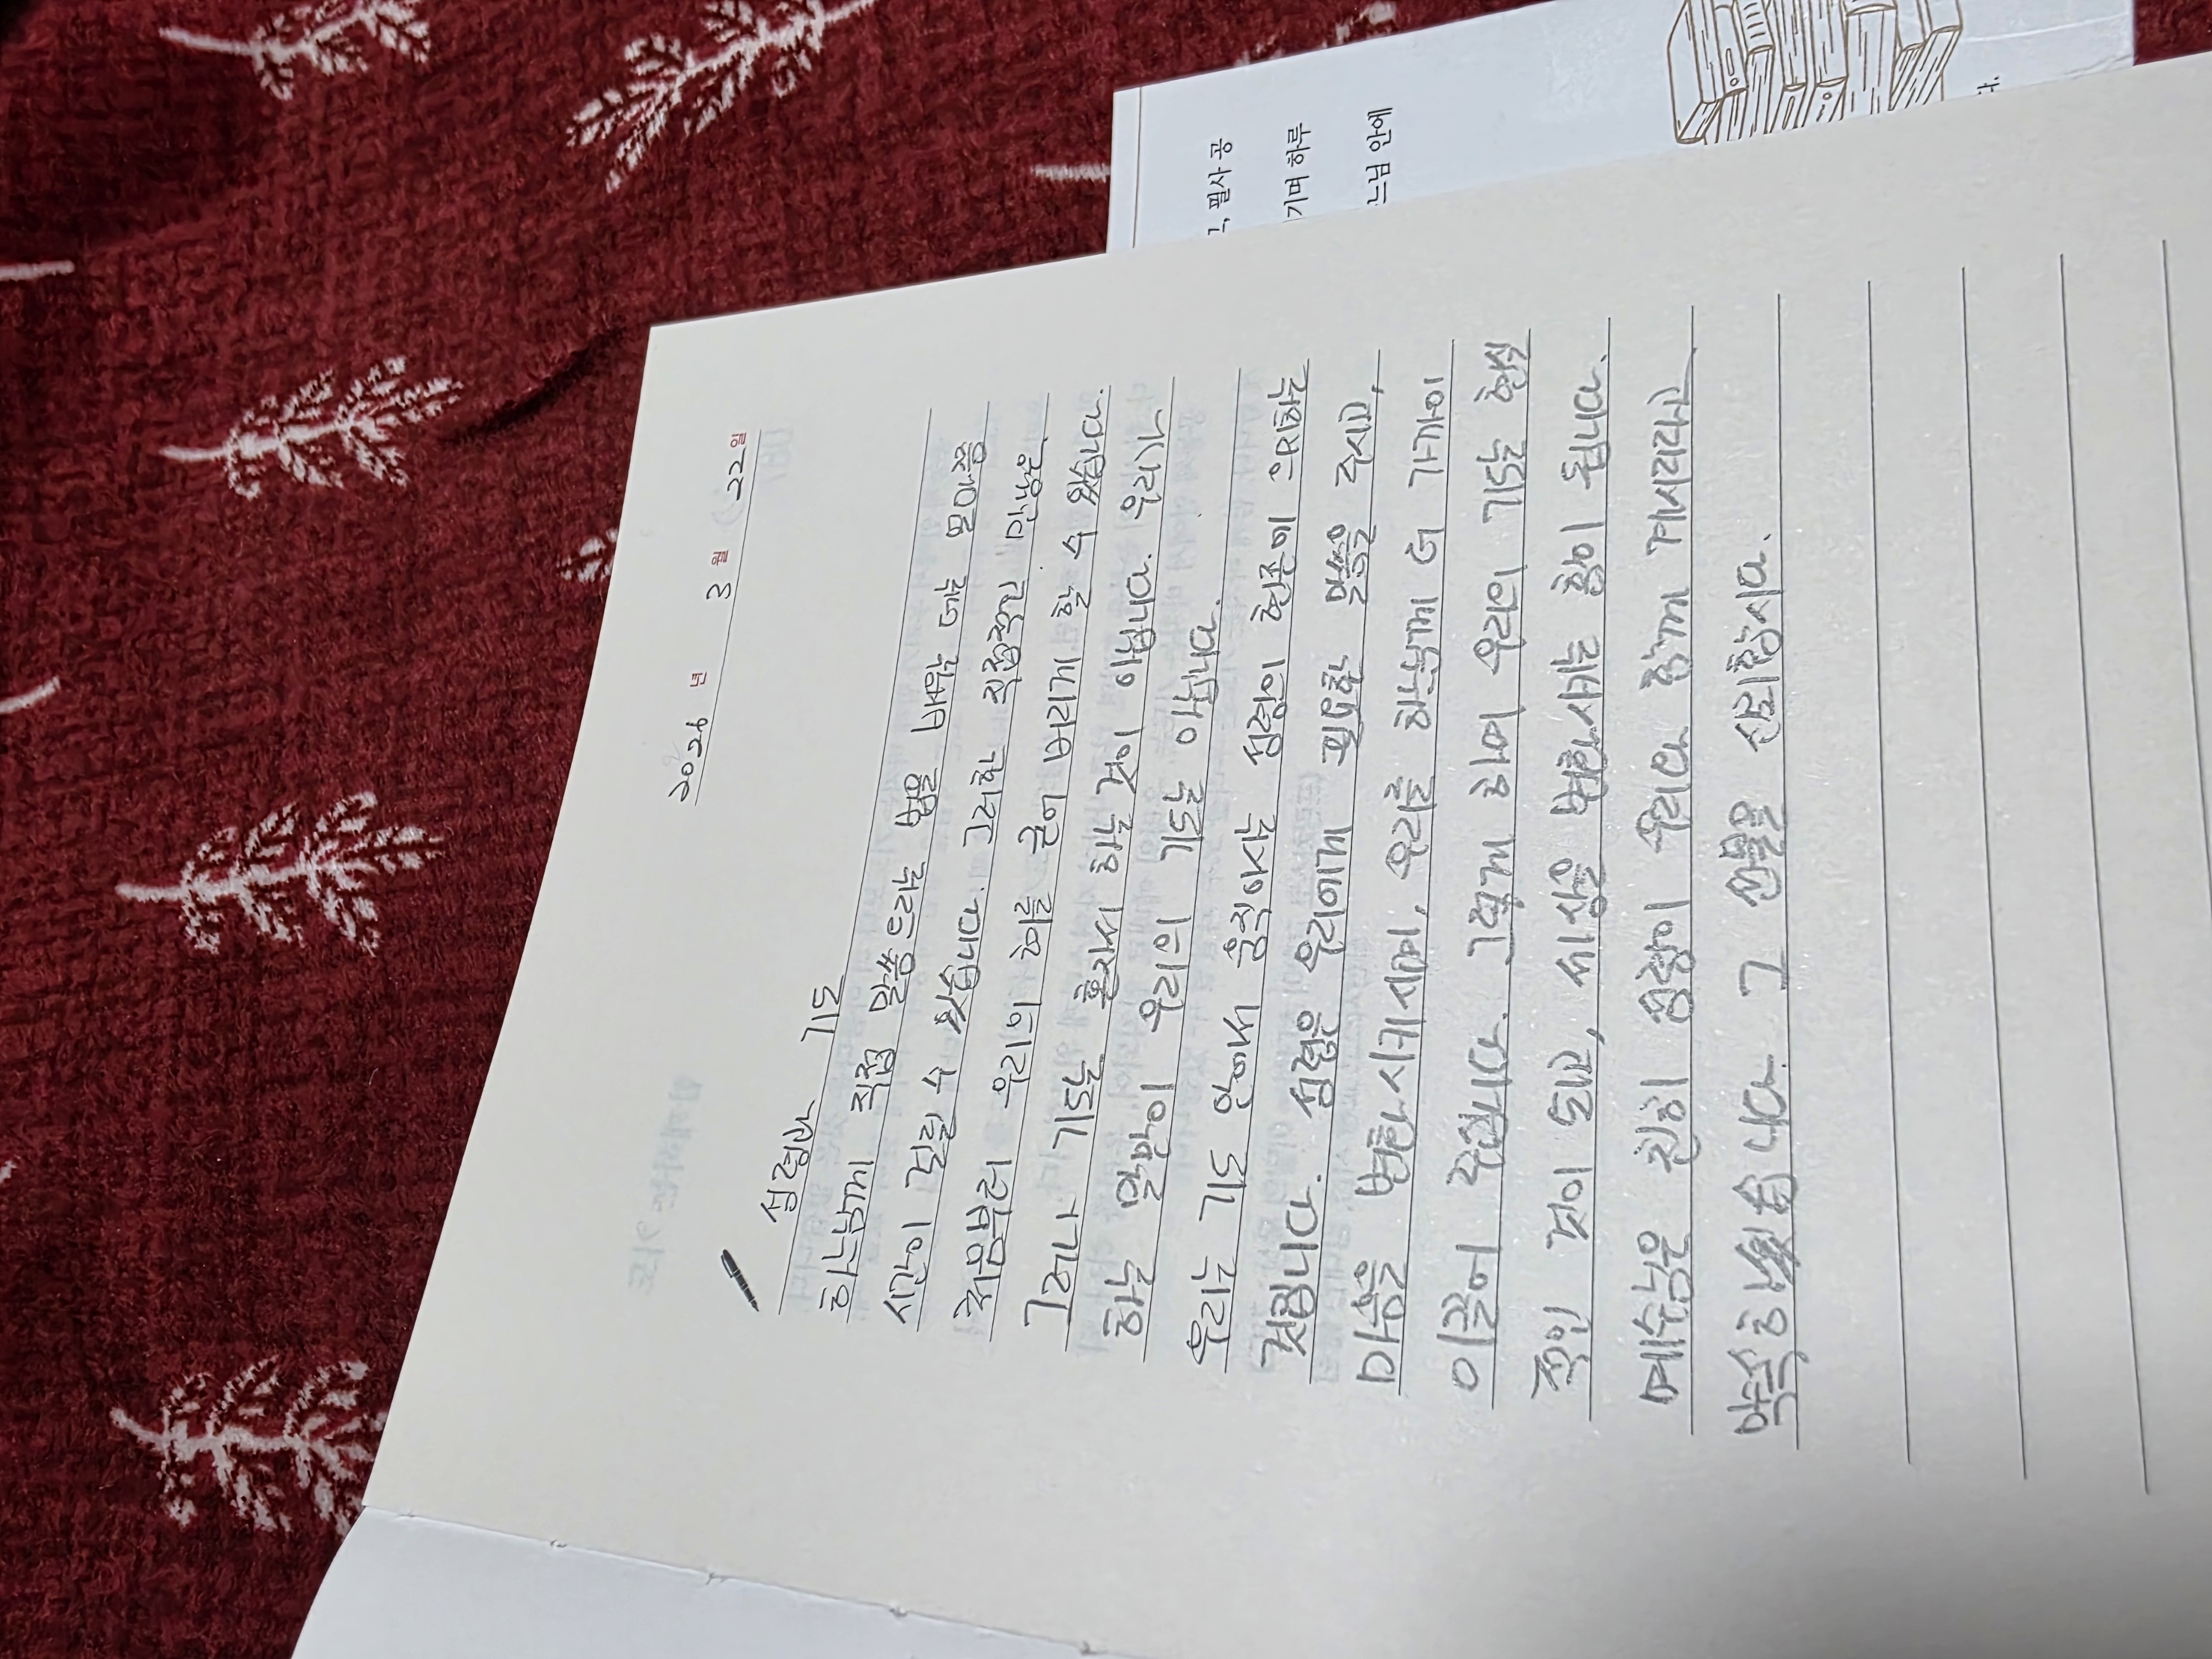 2026 년 3 월 22 일
성령과 기도
하느님께 직접 말씀드리는 법을 배워 가는 몇몇
시간이 걸릴 수 있습니다. 그러한 직접적 만남은
처음부터 우리의 혀를 굳어 버리게 할 수 있습니다.
그러나 기도는 혼자서 하는 것이 아닙니다. 우리가
하는 일만이 우리의 기도는 아닙니다.
우리는 기도 안에서 움직이시는 성령의 현존에 의지하는
것입니다. 성령은 우리에게 필요한 말씀을 주시고,
마음을 변화시키시며, 우리를 하느님께 더 가까이
이끌어 주십니다. 그렇게 하여 우리의 기도는 현실
적인 것이 되고, 세상을 변화시키는 힘이 됩니다.
예수님은 친히 성령이 우리와 함께 계시리라고
약속하셨습니다. 그 선물을 신뢰합시다.
, 필사 공
기며 하루
느님 안에
다.